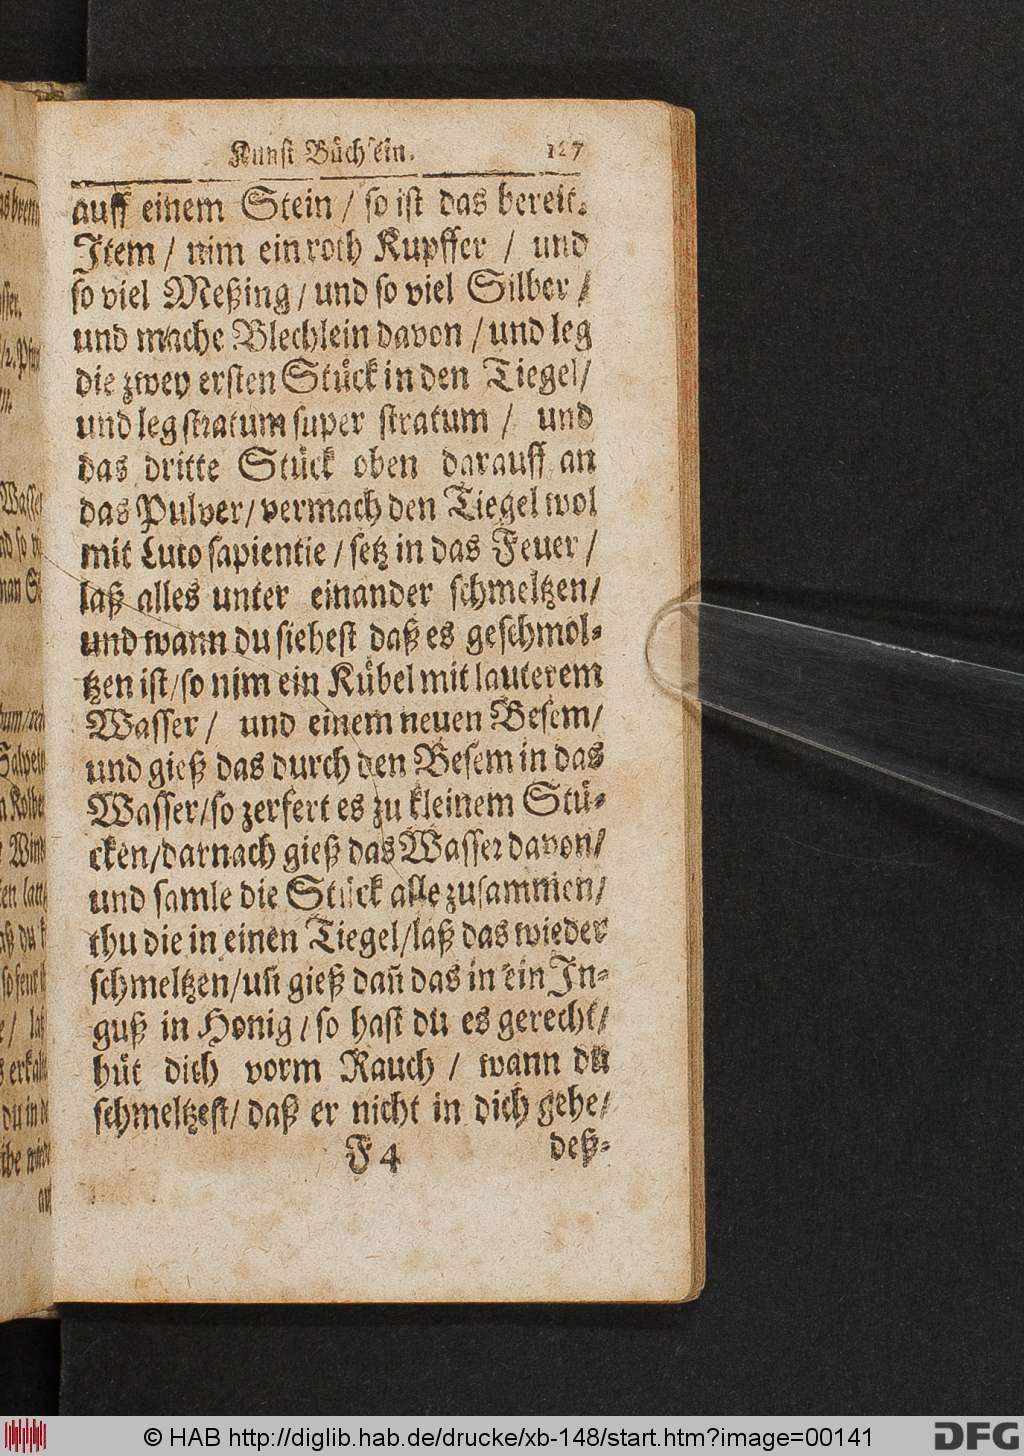 Kunst Büchlein. 127
auff einem Stein / so ist das bereit.
Item / nim ein roth Kupffer / und
so viel Meßing / und so viel Silber /
und mache Blechlein davon / und leg
die zwey ersten Stück in den Tiegel /
und leg stratum super stratum / und
das dritte Stück oben darauff an
das Pulver / vermach den Tiegel wol
mit Luto sapientie / setz in das Feuer /
laß alles unter einander schmeltzen /
und wann du siehest daß es geschmol-
tzen ist / so nim ein Kübel mit lauterem
Wasser / und einem neuen Besem /
und gieß das durch den Besem in das
Wasser / so zerfert es zu kleinem Stü-
cken / darnach gieß das Wasser davon /
und samle die Stück alle zusammen /
thu die in einen Tiegel / laß das wieder
schmeltzen / uñ gieß dañ das in ein In-
guß in Honig / so hast du es gerecht /
hüt dich vorm Rauch / wann du
schmeltzest / daß er nicht in dich gehe /
F 4 deß-
© HAB http://diglib.hab.de/drucke/xb-148/start.htm?image=00141
DFG